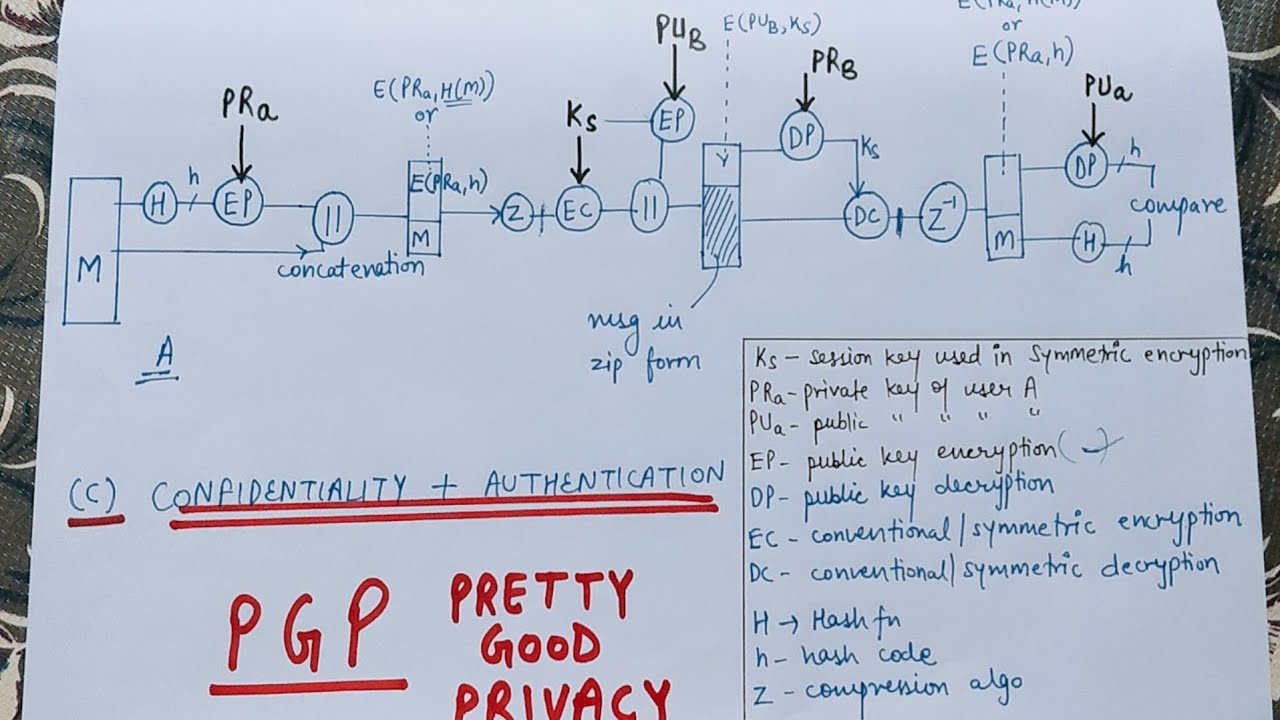 E(PRa, H(M))
or
E(PRa,h)
PUB
E(PUB,Ks)
PRB
PUa
E(PRa,H(M))
or
PRa
Ks
EP
DP
Ks
DP
h
h
H
EP
||
E(PRa,h)
M
Z
EC
||
Y
DC
Z⁻¹
M
H
h
compare
M
concatenation
A
msg in
zip form
Ks - session key used in symmetric encryption
PRa - private key of user A
PUa - public " " " "
EP - public key encryption
DP - public key decryption
EC - conventional/symmetric encryption
DC - conventional/symmetric decryption
H → Hash fn
h - hash code
Z - compression algo
(C) CONFIDENTIALITY + AUTHENTICATION
PGP
PRETTY
GOOD
PRIVACY